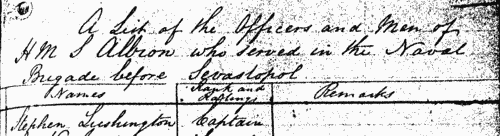 A List of the Officers and Men of
H M S Albion who served in the Naval
Brigade before Sevastopol
Names Rank and Ratings Remarks
Stephen Lushington Captain